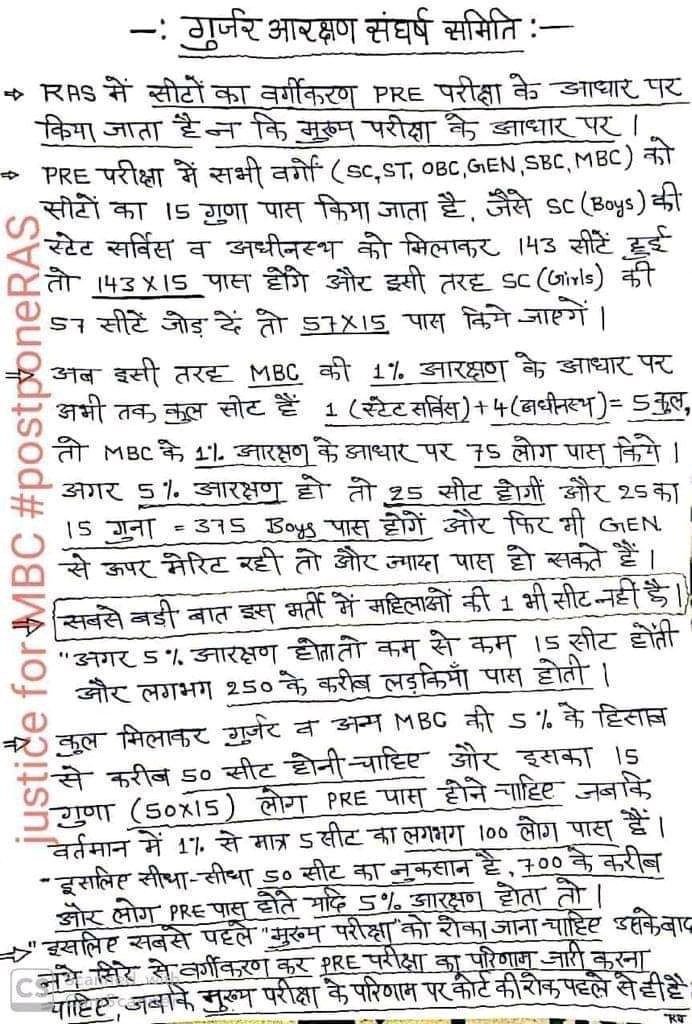 —: गुर्जर आरक्षण संघर्ष समिति :—
→ RAS में सीटों का वर्गीकरण PRE परीक्षा के आधार पर
किया जाता है न कि मुख्य परीक्षा के आधार पर ।
→ PRE परीक्षा में सभी वर्गों (SC, ST, OBC, GEN, SBC, MBC) को
सीटों का 15 गुणा पास किया जाता है, जैसे SC (Boys) की
स्टेट सर्विस व अधीनस्थ को मिलाकर 143 सीटें हुई
तो 143 X 15 पास होंगे और इसी तरह SC (Girls) की
57 सीटें जोड़ दें तो 57X15 पास किये जाएगें ।
⇒ अब इसी तरह MBC की 1% आरक्षण के आधार पर
अभी तक कुल सीट हैं 1 (स्टेट सर्विस) + 4 (अधीनस्थ) = 5 कुल,
तो MBC के 1% आरक्षण के आधार पर 75 लोग पास किये ।
अगर 5% आरक्षण हो तो 25 सीट होगीं और 25 का
15 गुना = 375 Boys पास होगें और फिर भी GEN
से ऊपर मेरिट रही तो और ज्यादा पास हो सकते हैं ।
⇒ सबसे बडी बात इस भर्ती में महिलाओं की 1 भी सीट नहीं है ।
"अगर 5% आरक्षण होता तो कम से कम 15 सीट होंती
और लगभग 250 के करीब लड़कियाँ पास होती ।
⇒ कुल मिलाकर गुर्जर व अन्य MBC की 5% के हिसाब
से करीब 50 सीट होनी चाहिए और इसका 15
गुणा (50X15) लोग PRE पास होने चाहिए जबकि
वर्तमान में 1% से मात्र 5 सीट का लगभग 100 लोग पास हैं ।
- इसलिए सीधा-सीधा 50 सीट का नुकसान है, 700 के करीब
और लोग PRE पास होते यदि 5% आरक्षण होता तो ।
⇒ "इसलिए सबसे पहले "मुख्य परीक्षा" को रोका जाना चाहिए उसके बाद
नये सिरे से वर्गीकरण कर PRE परीक्षा का परिणाम जारी करना
चाहिए, जबकि मुख्य परीक्षा के परिणाम पर कोर्ट की रोक पहले से ही है
justice for MBC #postponeRAS
CS Scanned with